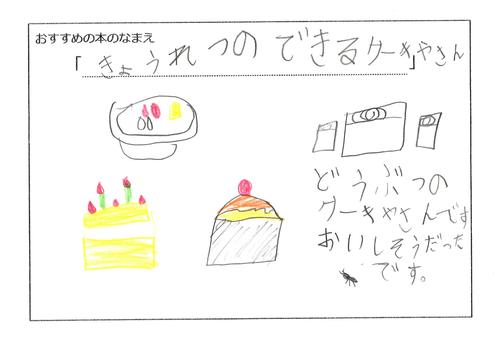 おすすめの本のなまえ
「きょうれつのできるケーキやさん」
どうぶつの
ケーキやさんです
おいしそうだった
です。